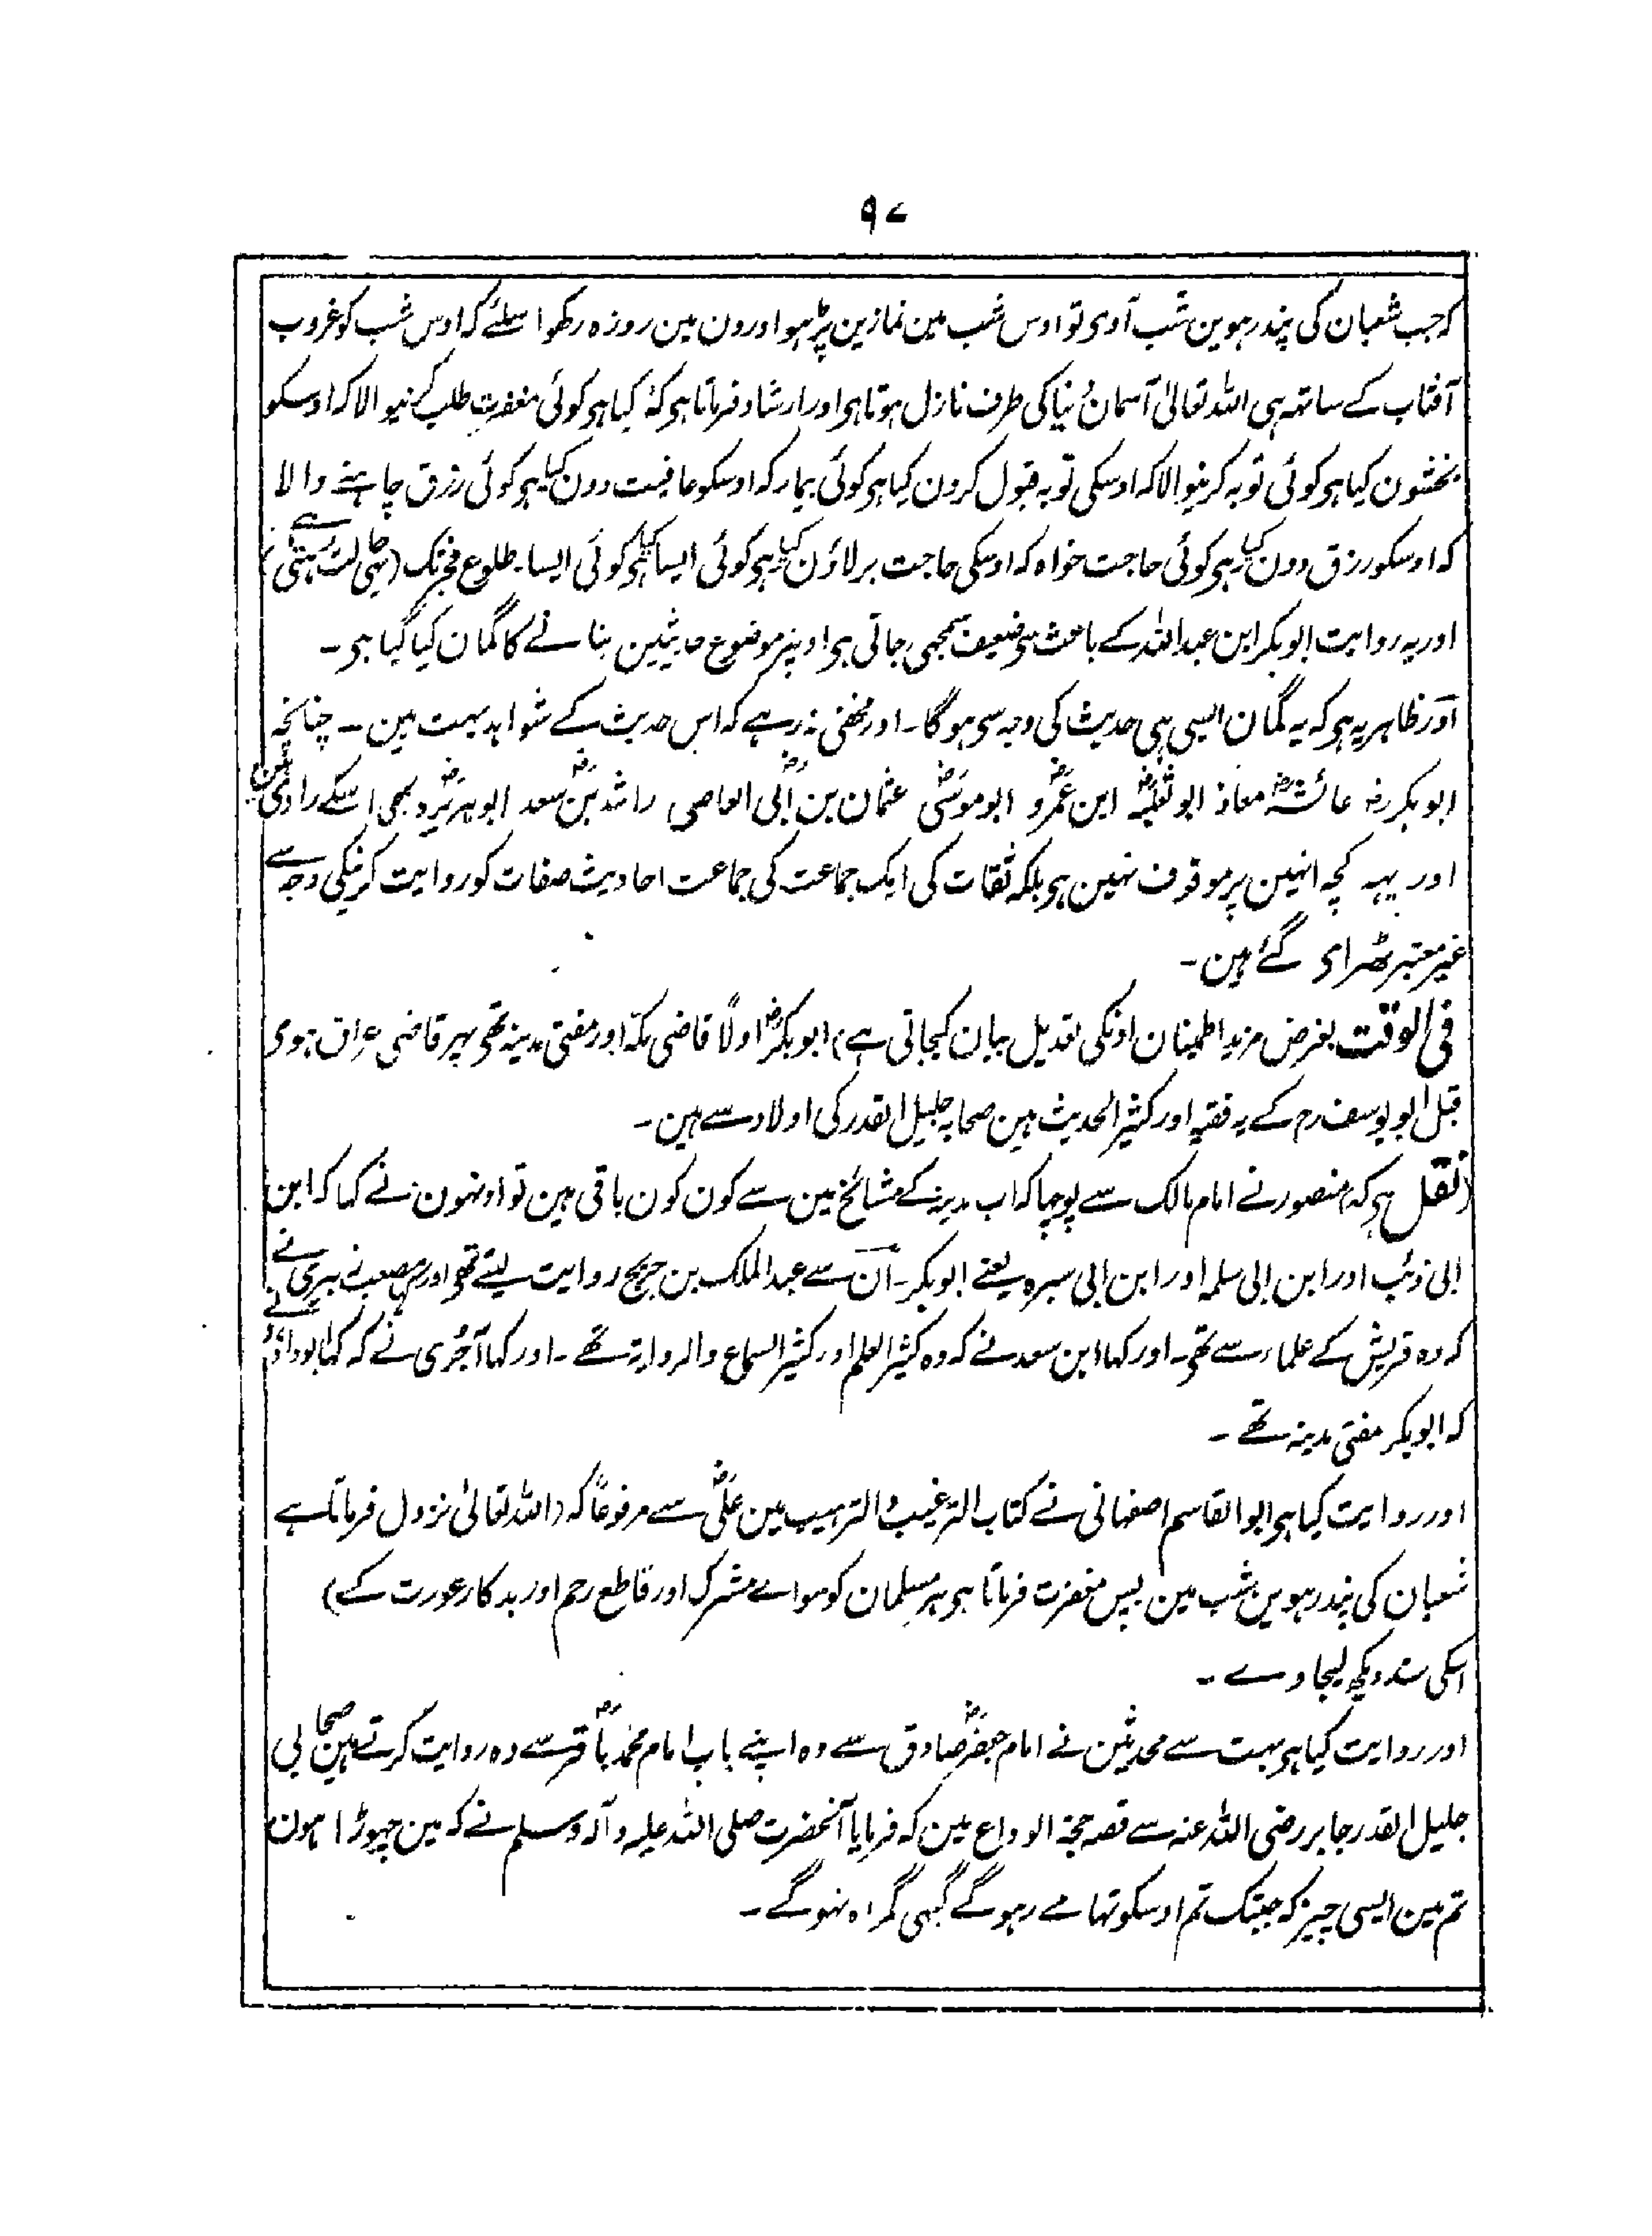 ۹۷
کہ جب شعبان کی پندرہوین شب آوی تو اوس شب مین نمازین پڑہو اور دن مین روزہ رکھو اسلئے کہ اوس شب کو غروب
آفتاب کے ساتہہ ہی اللہ تعالیٰ آسمان دُنیا کی طرف نازل ہوتا ہی اور ارشاد فرماتا ہی کہ کیا ہی کوئی مغفرت طلب کرنیوالا کہ اوسکو
بخشون کیا ہی کوئی توبہ کرنیوالا کہ اوسکی توبہ قبول کرون کیا ہی کوئی بیمار کہ اوسکو عافیت دون کیا ہی کوئی رزق چاہنے والا
کہ اوسکو رزق دون کیا ہی کوئی حاجت خواہ کہ اوسکی حاجت بر لاؤن کیا ہی کوئی ایسا کیا ہی کوئی ایسا۔ طلوع فجر تک (یہی حالت رہتی ہے)
اور یہ روایت ابوبکر ابن عبداللہ کے باعث سی ضعیف سمجھی جاتی ہی اونپر موضوع حدیثین بنانے کا گمان کیا گیا ہی۔
اور ظاہر یہ ہی کہ یہ گمان ایسی ہی حدیث کی وجہ سی ہوگا۔ اور مخفی نہ رہے کہ اس حدیث کے شواہد بہت ہین۔ چنانچہ
ابوبکر رضہ عائشہؓ معاذ ابو ثعلبہؓ ابن عمروؓ ابو موسیٰؓ عثمان بن ابی العاصیؓ راشد بن سعدؓ ابوہریرہؓ و بھی اسکے راوی ہین
اور یہہ کچہہ انہین پر موقوف نہین ہی بلکہ ثقات کی ایک جماعت کی جماعت احادیث صفات کو روایت کرنیکی وجہ سے
غیر معتبر ٹھرای گئے ہین۔
فی الوقت بغرض مزید اطمینان اونکی تعدیل بیان کیجاتی ہے) ابوبکر اولًا قاضی مکہ اور مفتی مدینہ تھی پہر قاضی عراق ہوی
قبل ابو یوسف رح کے یہ فقیہ اور کثیر الحدیث ہین صحابہ جلیل القدر کی اولاد سے ہین۔
(نقل ہی کہ) منصور نے امام مالک سے پوچہا کہ اب مدینہ کے مشائخ مین سے کون کون باقی ہین تو اونہون نے کہا کہ ابن
ابی ذئب اور ابن ابی سلمہ اور ابن ابی سبرہ یعنے ابوبکر۔ اُن سے عبدالملک بن جریج روایت لیتے تھی اور کہا مصعب زبیری نے
کہ وہ قریش کے علماء سے تھی۔ اور کہا ابن سعد نے کہ وہ کثیر العلم اور کثیر السماع والروایۃ تھے۔ اور کہا آجُری نے کہ کہا ابو داؤد نے
کہ ابوبکر مفتی مدینہ تھے۔
اور روایت کیا ہی ابو القاسم اصفہانی نے کتاب الترغیب والترہیب مین علیؓ سے مرفوعًا کہ (اللہ تعالیٰ نزول فرماتا ہے
شعبان کی پندرہوین شب مین پس مغفرت فرماتا ہی ہر مسلمان کو سواے مشرک اور قاطع رحم اور بدکار عورت کے)
اسکی سند دیکھ لیجاوے۔
اور روایت کیا ہی بہت سے محدثین نے امام جعفرؓ صادق سے وہ اپنے باپ امام محمد باقرؓ سے وہ روایت کرتے ہین صحابی
جلیل القدر جابر رضی اللہ عنہ سے قصہ حجۃ الوداع مین کہ فرمایا آنحضرت صلی اللہ علیہ وآلہ وسلم نے کہ مین چہوڑا ہون
تم مین ایسی چیز کہ جبتک تم اوسکو تہامے رہوگے کبہی گمراہ نہوگے۔